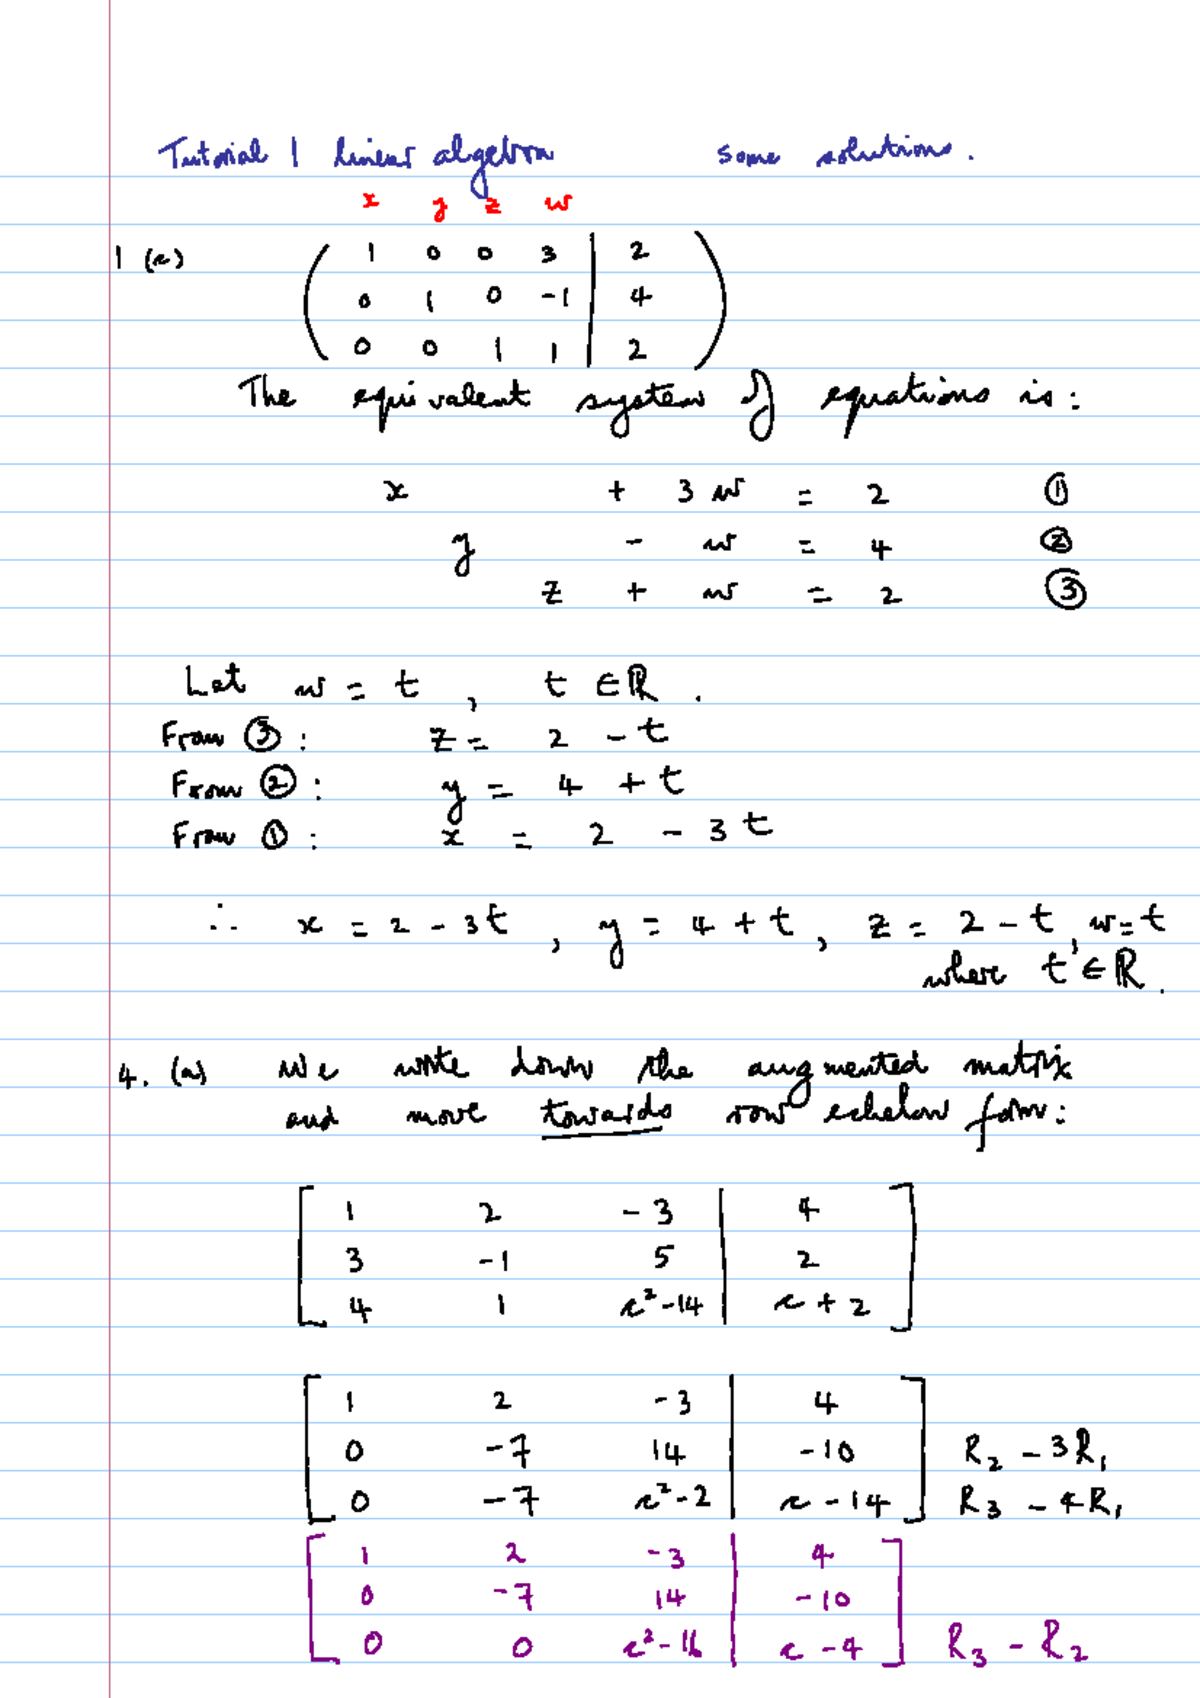 Tutorial 1 linear algebra some solutions.
x y z w
1 (c) ( 1 0 0 3 | 2 )
0 1 0 -1 | 4
0 0 1 1 | 2
The equivalent system of equations is:
x + 3w = 2 ①
y - w = 4 ②
z + w = 2 ③
Let w = t , t ∈ ℝ .
From ③ : z = 2 - t
From ② : y = 4 + t
From ① : x = 2 - 3t
∴ x = 2 - 3t , y = 4 + t , z = 2 - t , w = t
where t ∈ ℝ .
4. (a) We write down the augmented matrix
and move towards row echelon form:
[ 1 2 -3 | 4 ]
3 -1 5 | 2
4 1 c²-14 | c + 2
[ 1 2 -3 | 4 ]
0 -7 14 | -10 R₂ - 3R₁
0 -7 c²-2 | c - 14 R₃ - 4R₁
[ 1 2 -3 | 4 ]
0 -7 14 | -10
0 0 c²-16 | c - 4 R₃ - R₂